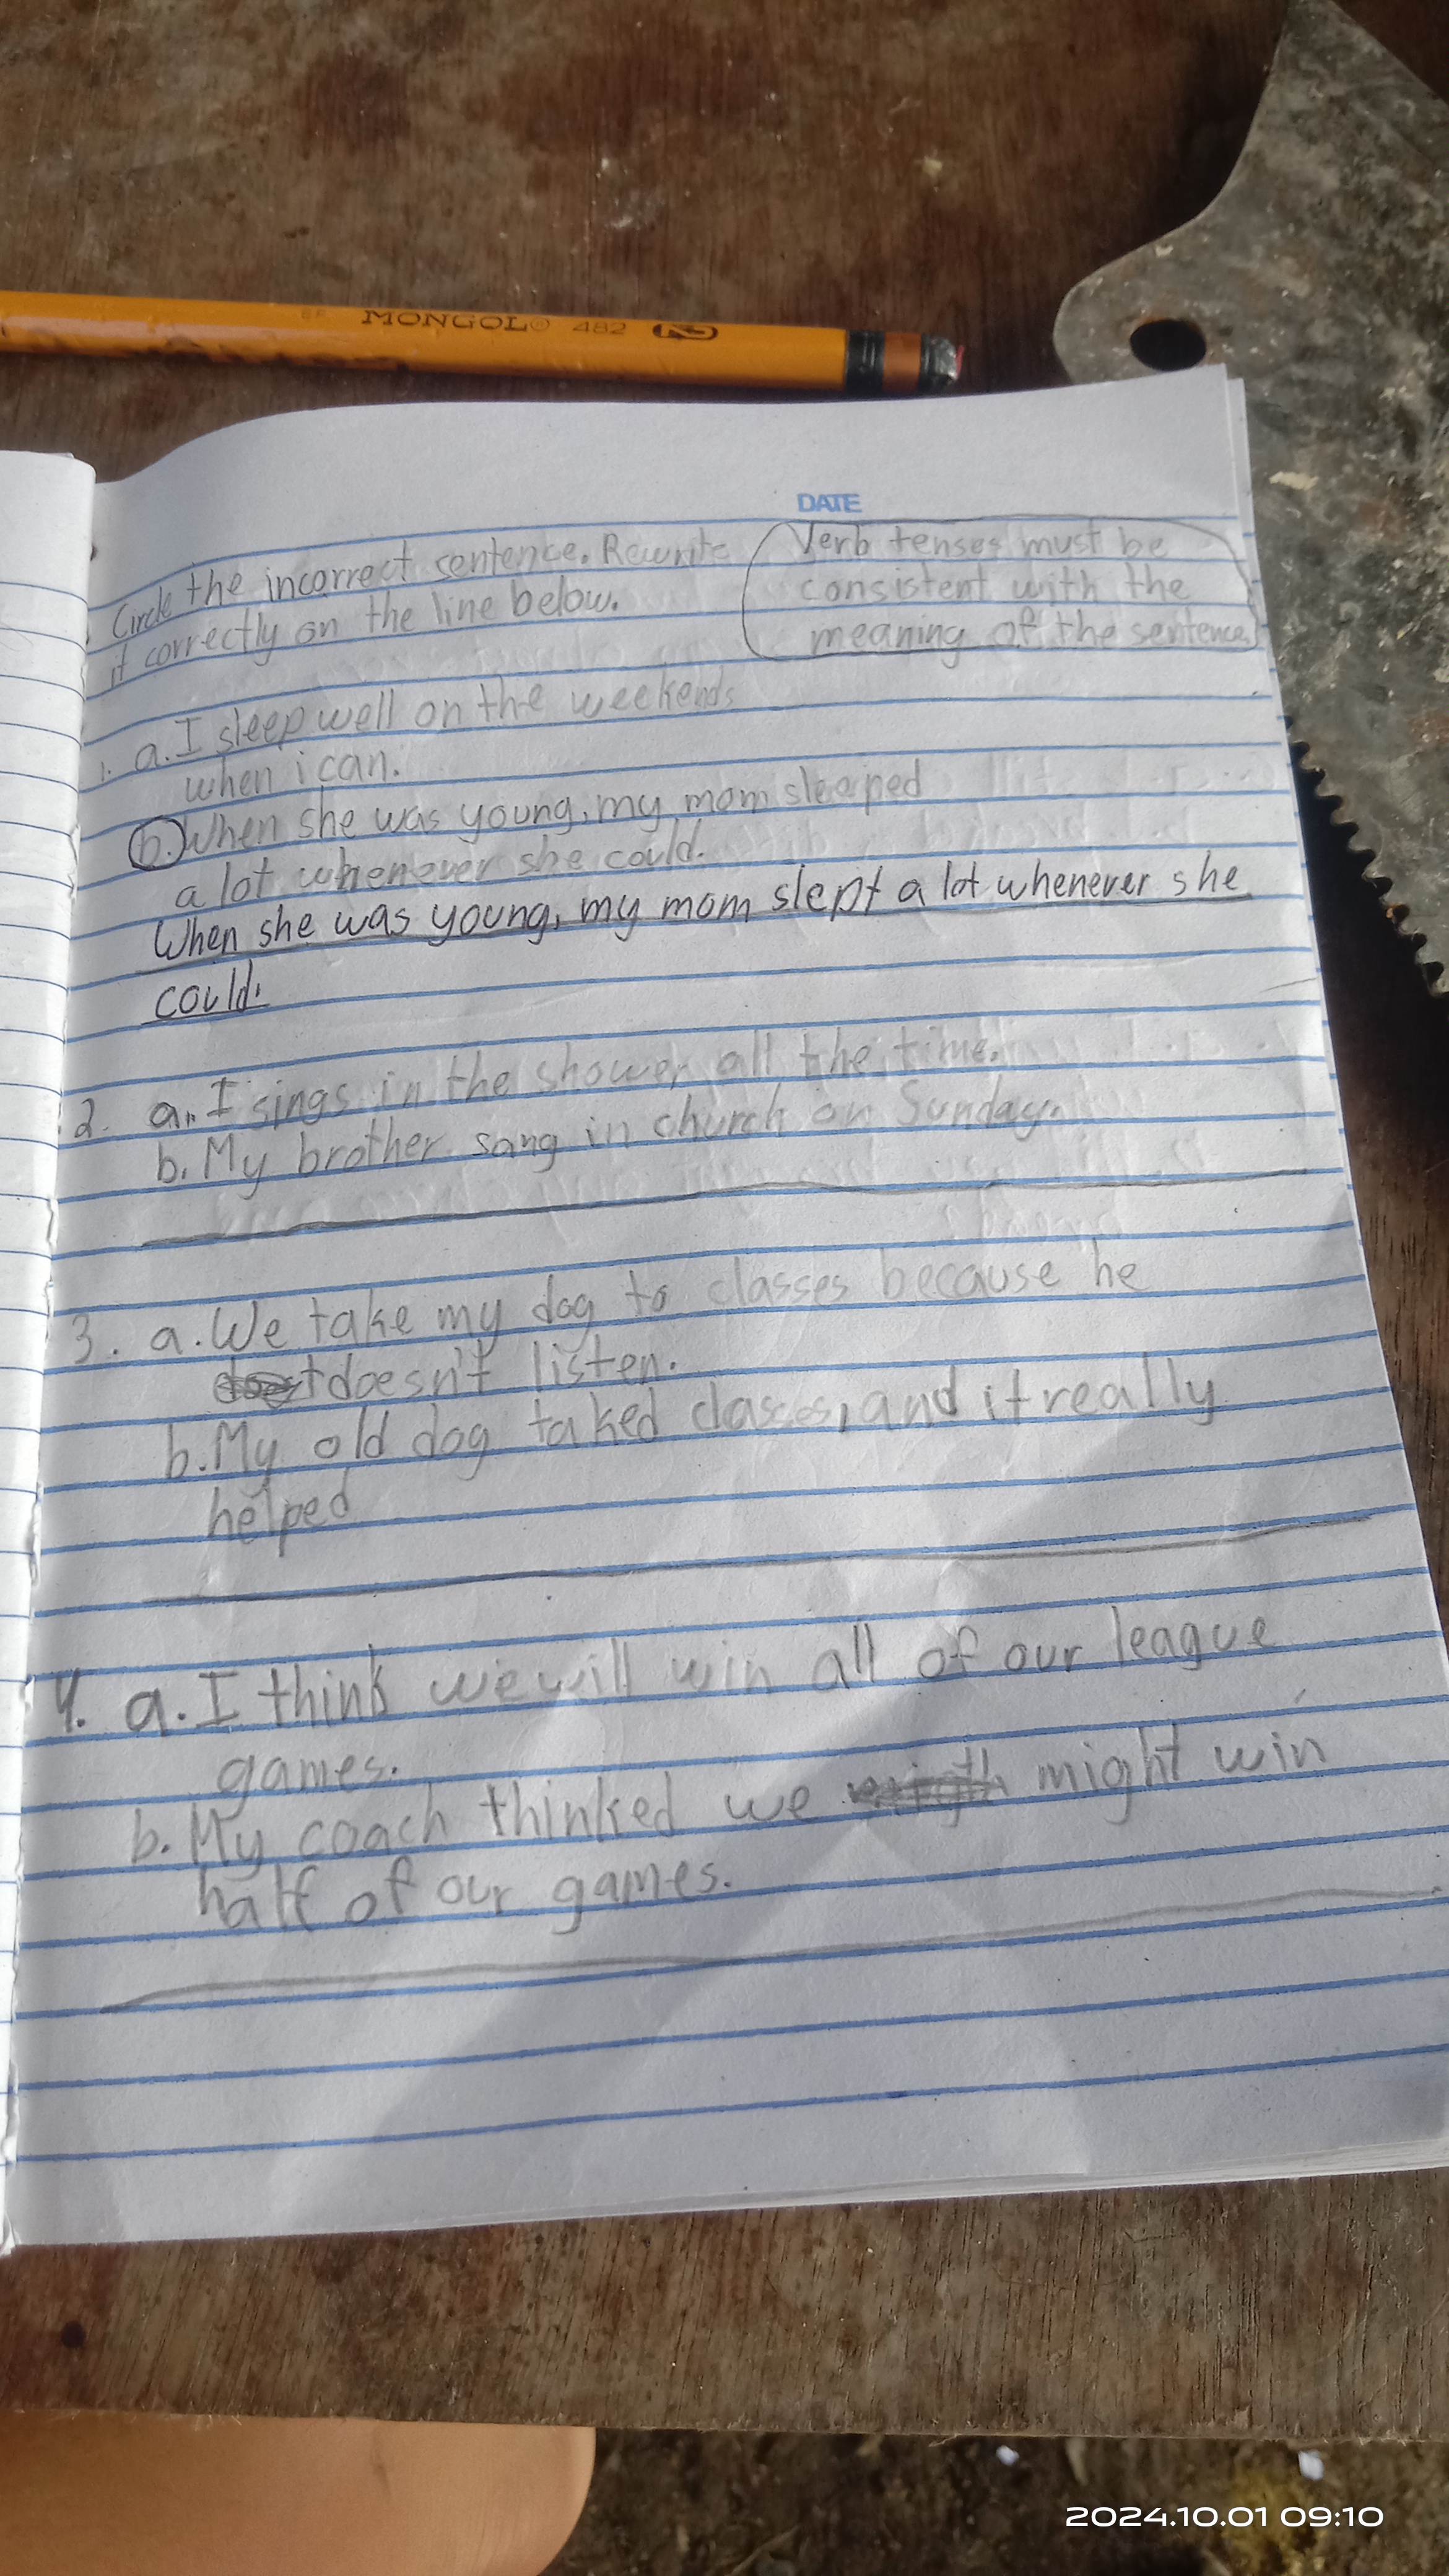 MONGOL® 482 2
DATE
Circle the incorrect sentence. Rewrite
it correctly on the line below.
Verb tenses must be
consistent with the
meaning of the sentence
1. a. I sleep well on the weekends
when i can.
b. When she was young, my mom sleeped
a lot whenever she could.
When she was young, my mom slept a lot whenever she
could.
2. a. I sings in the shower all the time.
b. My brother sang in church on Sunday.
3. a. We take my dog to classes because he
doesn't listen.
b. My old dog taked classes, and it really
helped
4. a. I think we will win all of our league
games.
b. My coach thinked we might win
half of our games.
2024.10.01 09:10